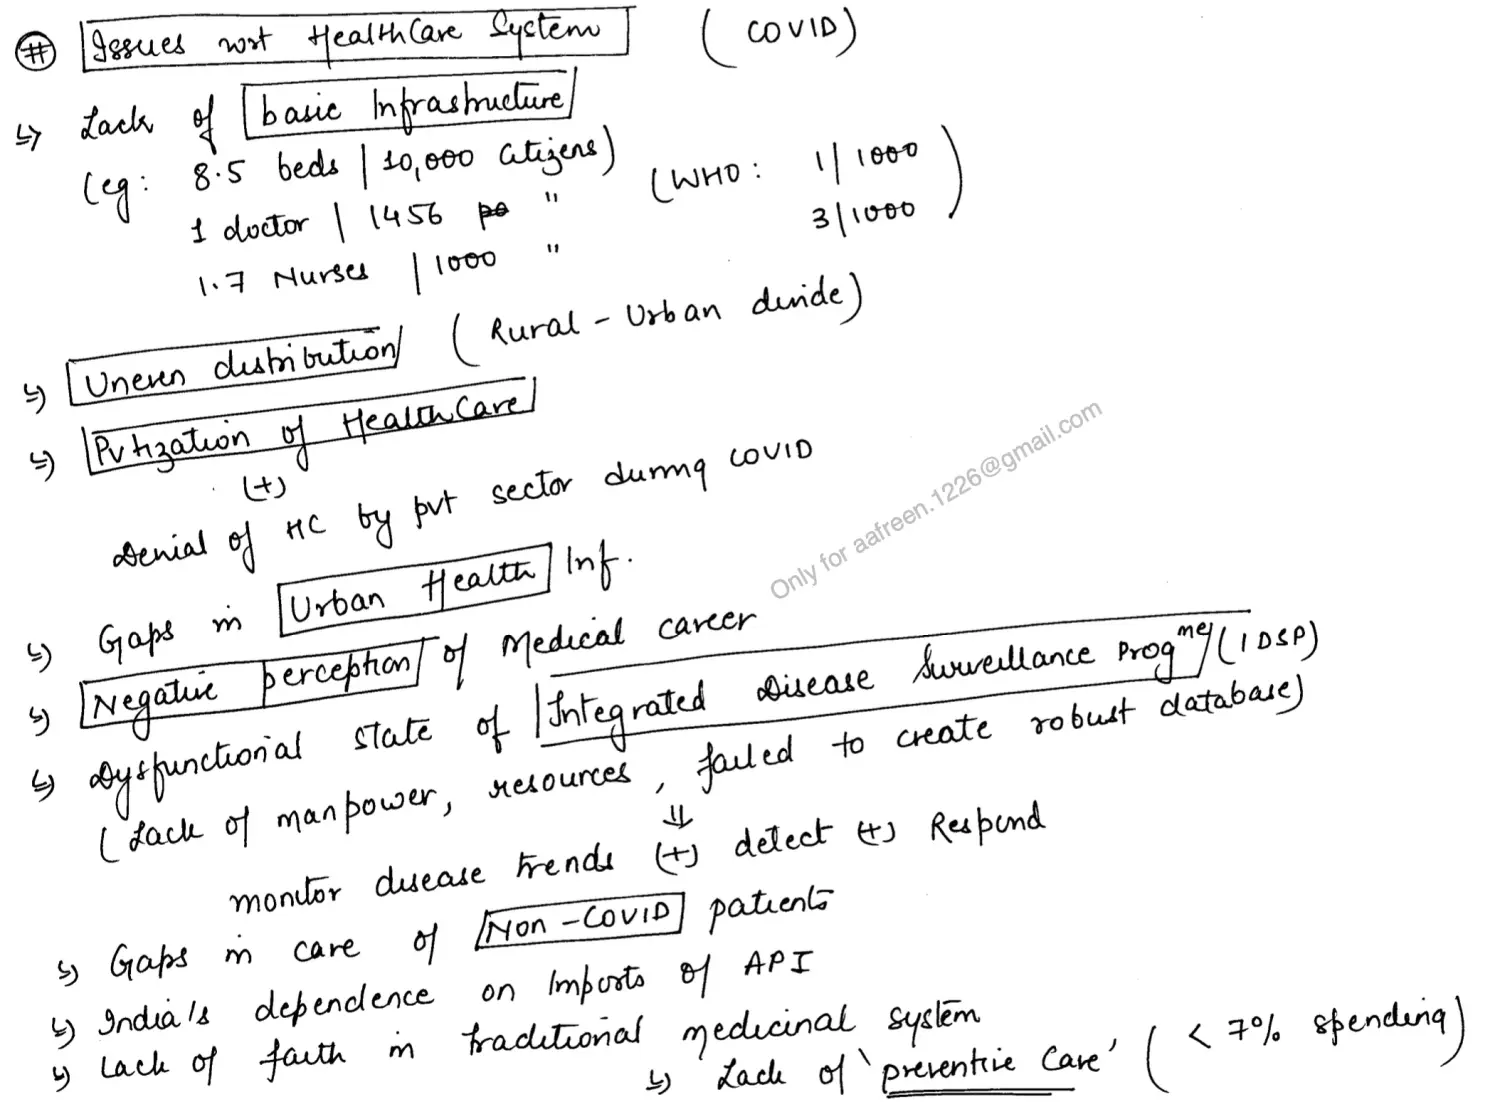 # Issues wrt HealthCare System (COVID)
↳ Lack of basic Infrastructure
(eg: 8.5 beds | 10,000 citizens) (WHO: 1/1000
1 doctor | 1456 " 3/1000)
1.7 Nurses | 1000 "
↳ Uneven distribution (Rural-Urban divide)
↳ Pvtization of HealthCare
(+)
Denial of HC by pvt sector during COVID
↳ Gaps in Urban Health Inf.
↳ Negative perception of Medical career
↳ Dysfunctional state of Integrated Disease Surveillance Progme (IDSP)
(Lack of manpower, resources, failed to create robust database)
⇓
monitor disease trends (+) detect (+) Respond
↳ Gaps in care of Non-COVID patients
↳ India's dependence on Imports of API
↳ Lack of faith in traditional medicinal system
↳ Lack of 'preventive Care' (< 7% spending)
Only for aafreen.1226@gmail.com